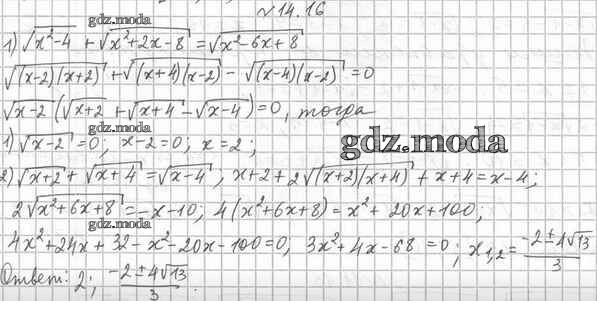 №14.16
gdz.moda
1) √(x²-4) + √(x²+2x-8) = √(x²-6x+8)
√((x-2)(x+2)) + √((x+4)(x-2)) - √((x-4)(x-2)) = 0
gdz.moda
√(x-2) (√(x+2) + √(x+4) - √(x-4)) = 0, тогда
gdz.moda
1) √(x-2) = 0; x-2=0; x=2;
gdz.moda
2) √(x+2) + √(x+4) = √(x-4); x+2+2√((x+2)(x+4)) + x+4 = x-4;
2√(x²+6x+8) = -x-10; 4(x²+6x+8) = x²+20x+100;
4x²+24x+32-x²-20x-100=0; 3x²+4x-68=0; x₁,₂ = (-2±4√13)/3
Ответ: 2; (-2±4√13)/3.